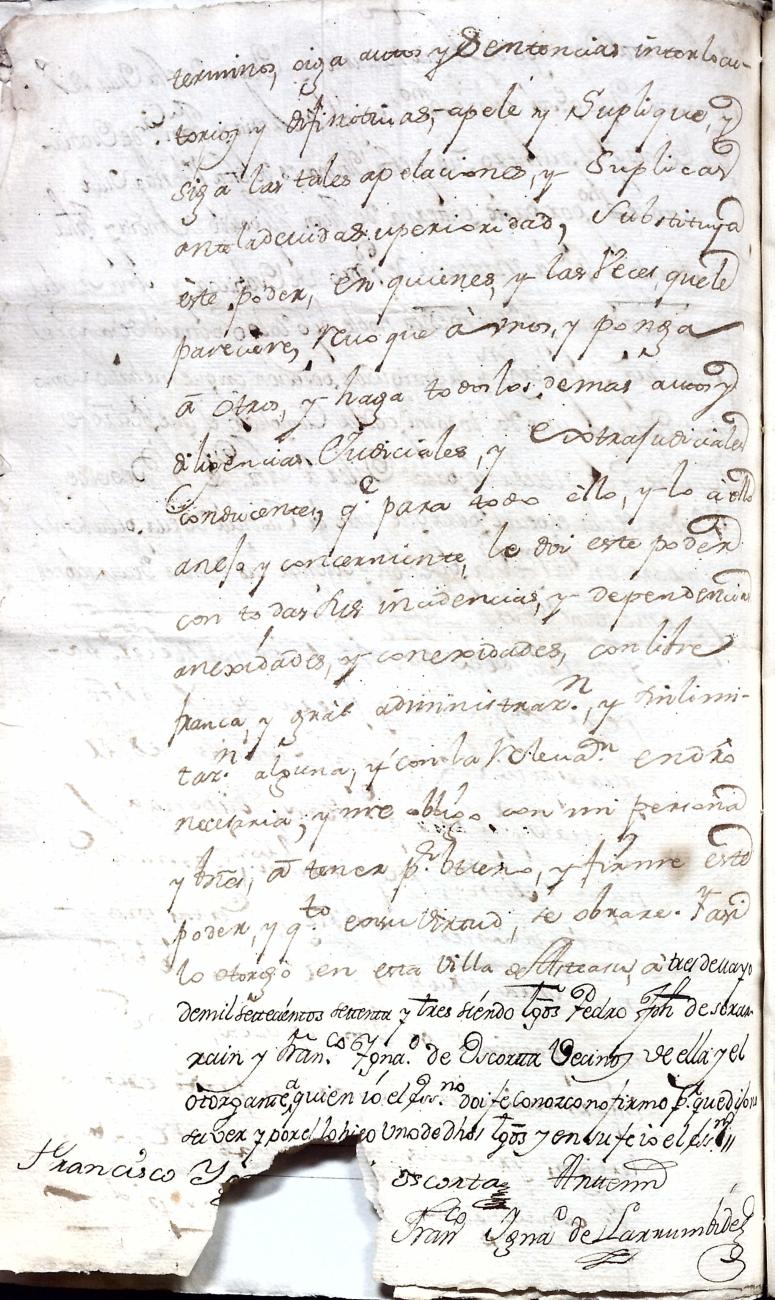 terminos, oiga autos y Sentencias interlocu-
torios y difinitivas, apele y Suplique, y
siga las tales apelaciones, y Suplicas
ante la devida Superioridad, Substituya
este poder, en quienes, y las Veces, que le
pareciere, Revoque à unos, y ponga
à otros, y haga todos los demas autos y
diligencias Judiciales, y Extrajudiciales
conducentes, q.e para todo ello, y lo à ello
anejo y concerniente, le doi este poder
con todas sus incidencias, y dependencias
anexidades, y conexidades, con libre
franca, y gràl administrar.n, y sin limi-
tar.n alguna, y con la Relevaz.n en dro
necesaria, y me obligo con mi persona
y bnes, à tener p.r bueno, y firme este
poder, y q.to en su virtud, se obrare. Y asi
lo otorgò en esta Villa de Asteasu, à tres de mayo
de mil settecientos settenta y tres siendo tgos Pedro Jph de
y Fran.co Ygna.o de Escorta Vecinos de ella y el
otorgante a quien io el ess.no doi fe conozco no firmo p.r que dijo no
saver y por el lo hizo uno de dhos tgos y en su fe io el ess.no
Francisco Y escorta Antemi
Fran.co Ygna.o de Larrumbide